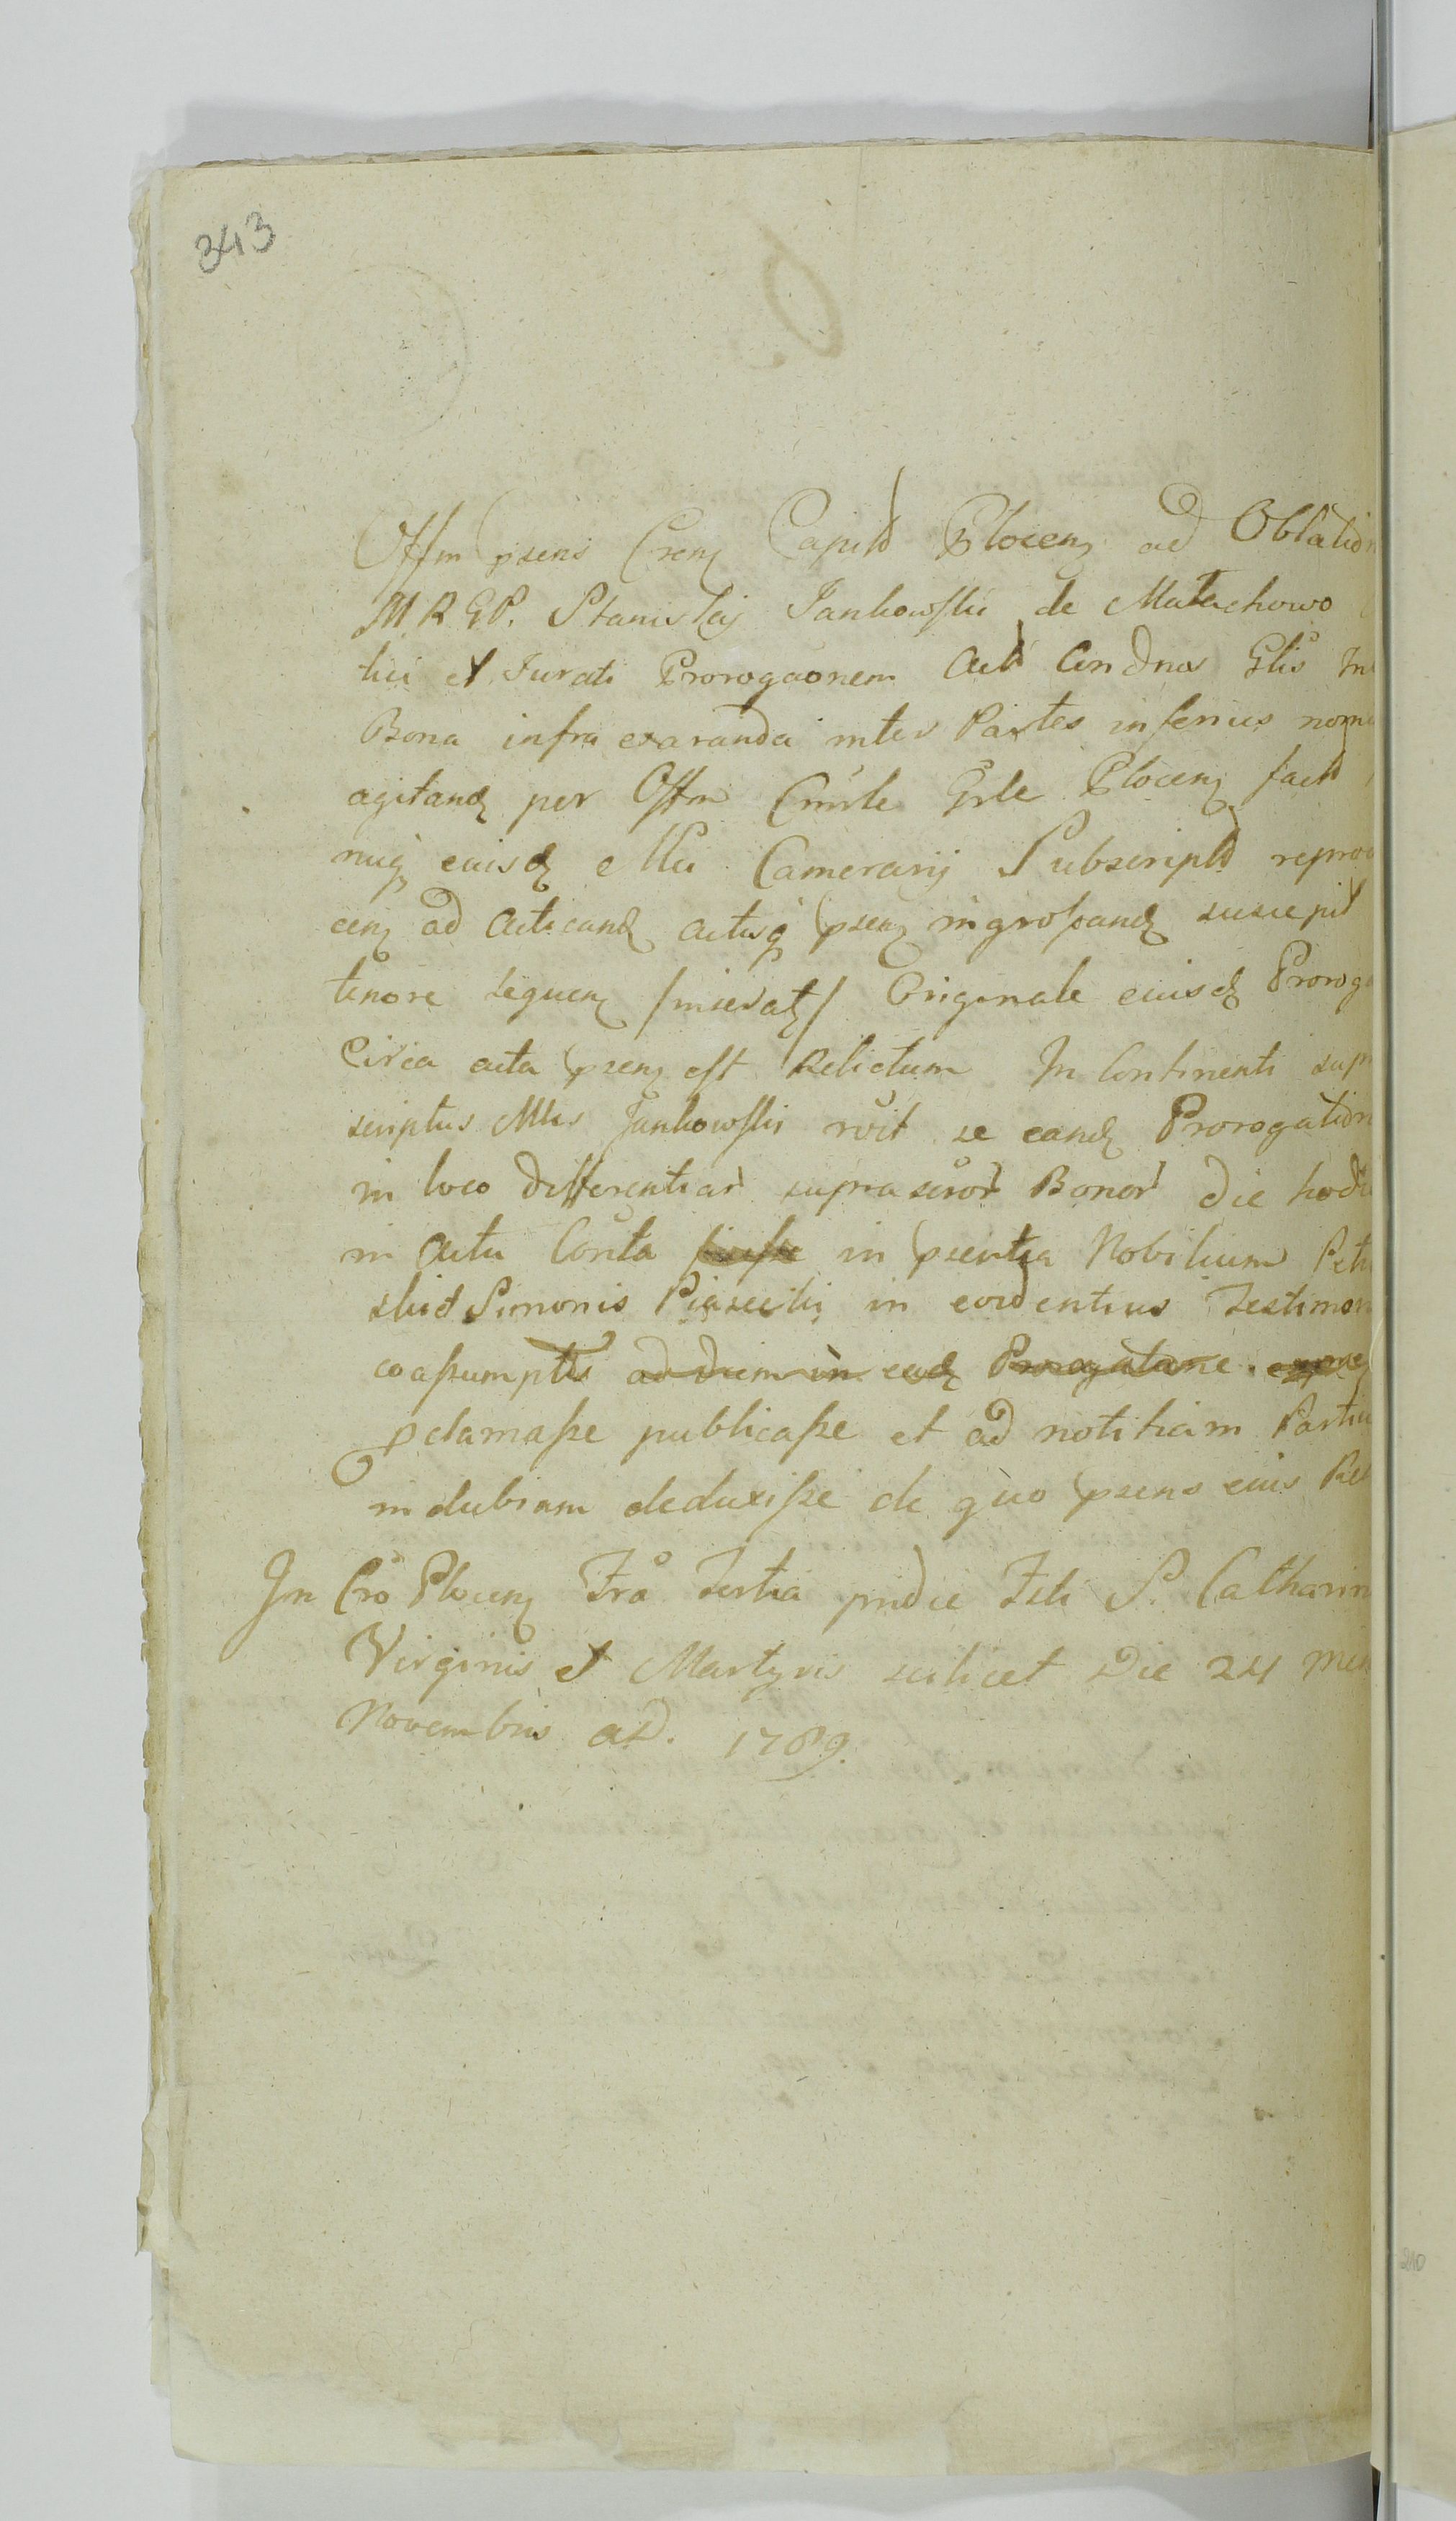 343
Offm psens Crens Capitd Plocens ad Oblation
M R G P. Stanislaj Jankowski de Małachowo
lici et Jurati Prorogaonem Actd Condnas Glis In
Bona infra exaranda inter Partes inferius nom
agitand per Offm Grle Plocens factd
nuq eiusd Mu Camerarij Subscriptd repro
cens ad acticand actisq psens ingroßand suscepit
tenore sequens /inserat/ Originale eiusd Proroga
Circa acta psens est Relictum In Continenti sup
scriptus Mlis Jankowski rőit se eand Prorogation
in loco differentiar suprascror Bonor die hodie
in actu Conta in psentia Nobilium Petri
skiet Simonis Piasecki in evidentius Testimon
coaßumptis ad diem in ead Prorogatane
pclamaße publicaße et ad notitiam Partiu
indubiam deduxiße de quo psens eius Rel
In Cro Plocens Fra Tertia pridie Fsti S. Catharin
Virginis et Martyris scilicet Die 24 men
Novembris ad. 1789.
210